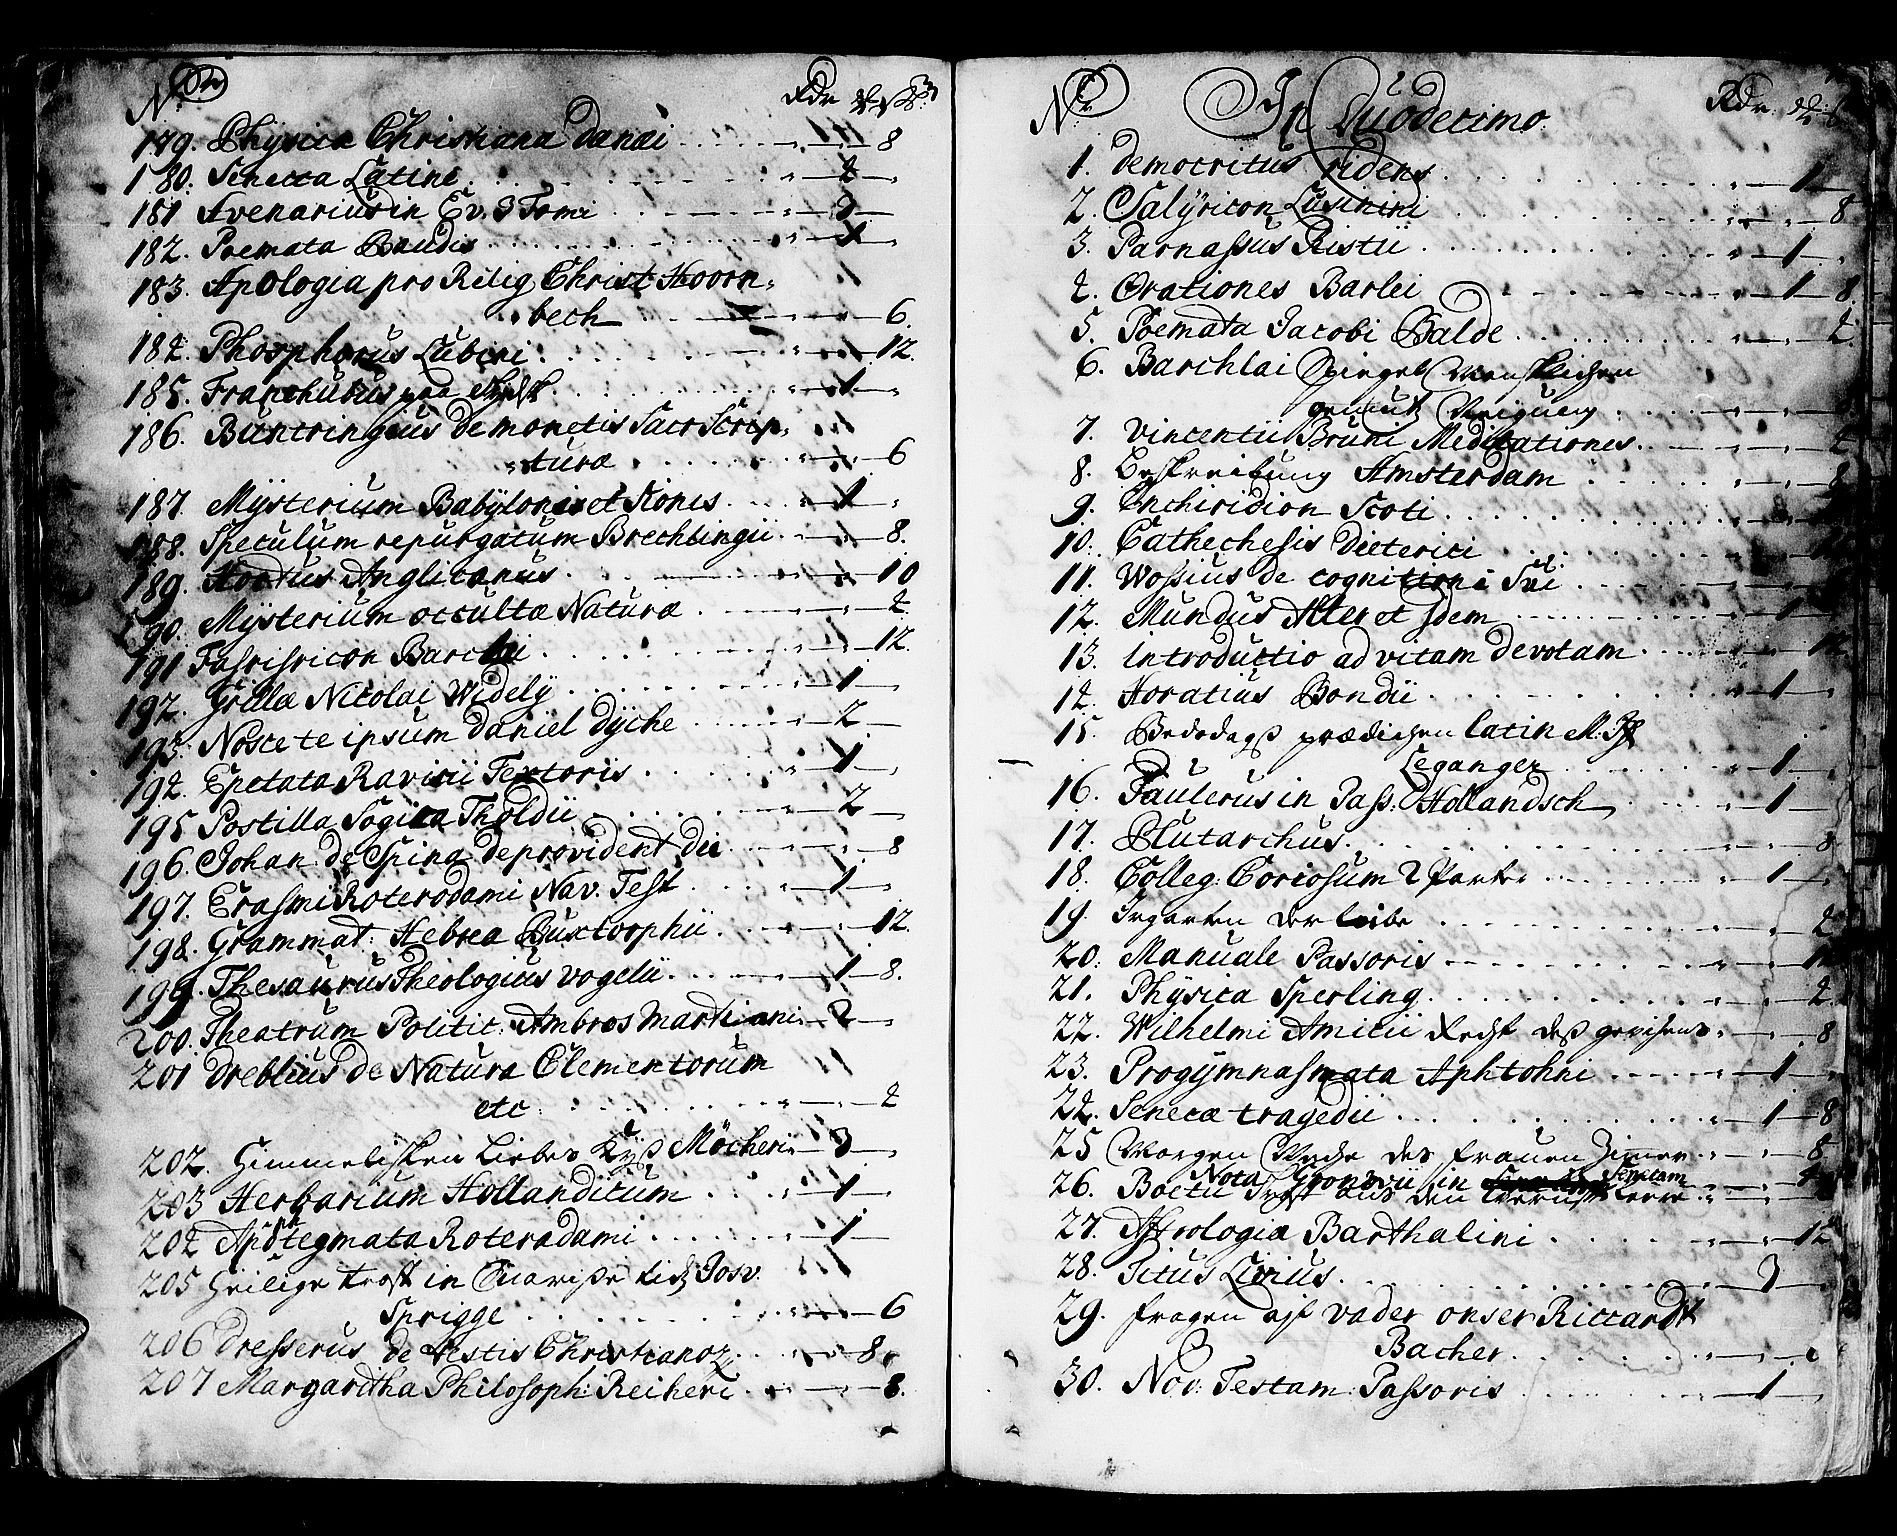 No Rdr ß
179. Physica Christiana danæi 8
180. Seneca Latine 2
181 Avenarius in Ev. 3 Tomi 3
182. Poemata Baudis 1
183. Apologia pro Relig Christ Hoorn,
bech 6.
184. Phosphorus Lubini 12.
185. 1
186. Buntringius de monetis Sacr Scrip,
turæ 6
187. Mysterium Babylonis et Sionis 1
188. Speculum repurgatum Brechlingii 8.
189. Hortus Anglicanus 10
190. Mysterium occultæ Naturæ 2
191 Barclii 12.
192. Grillæ Nicolai Widely 1
193. Noscete ipsum daniel dyche 2
194. Epetata Ravisii Textoris 1
195 Postilla Sogica Tholdii 2
196. Johan: de Spina de provident dei 8
197. Erasmi Roterodami Nav. Test 1
198. Grammat: Hebrea Buxtorphii 12.
199. Thesaurus Theologicus vogelii 1 8.
200. Theatrum Politic: Ambros Martiani 2
201 Dreblius de Natura Elementorum
etc 2
202. Himmelisken Liebes Kyß Möcheri 3
203 Herbarium Hollandicum 1
204 Apotegmata Roterodami 1
205 Heilige trost in Josv.
Sprigge 6
206 Dresserus de Festis Christianor 8
207 Margaritha Philosoph: Reiheri 8.
No In Duodecimo. Rdr.
1. Democritus ridens 1
2. Satyricon Lusinini 8
3. Parnassus Ristii 1
4. Orationes Barlei 1 8.
5. Poemata Jacobi Balde 2.
6. Barchlai Spiegel Menschlichen
gemüht
7. Vincentii Bruni Meditationes 2
8. Beschreibung Amsterdam 8
9. Enchiridion Scoti
10. Cathechesis Dieterici
11. Wossius de cognitione Sui
12. Mundus Alter et Idem 1
13. Introductio ad vitam devotam 12
14. Horatius Bondii 1
15. Bededags prædichen latin M: If
Leganger 1
16. Taulerus in Pass: Hollandsch 1
17. Plutarchus. 8
18. Colleg: Coriosum 2 Parter 1
19. Irgarten der leibe 2
20. Manuale Passoris
21. Physica Sperling 2
22. Wilhelmi Amicii Recht deß gewisens 8
23. Progymnasmata Aphtohni 1
24. Senecæ tragedii 1 8
25 Morgen Weche des frauen Zimer 8
Nota Gronovii in Senecam 4
26. Boetii Trost aus den
27. Astrologia Barthalini 12
28. Titus Livius 3
29. fragen ost vader onser Riccardt
Bacher
30. Nov: Testam: Passoris 1